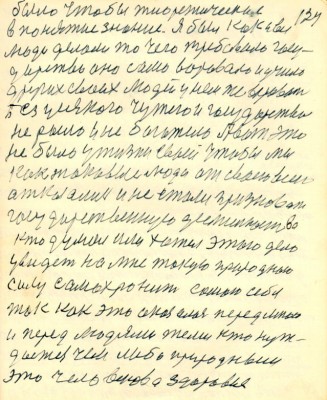 было чтобы теоретическая 134
в понятие знание. Я был как и все
люди делали то чего требовало госу-
дарство оно само воровало и учило
других своих людей у нем же воровать
Без всякого чужего и государства
не было и не богатело А вот это
не было у жизни своей чтобы мы
как таковые люди от своего всего
отказались и не стали признавать
государственную деятельность
Кто думал или хотел этого дело
увидеть на мне такую природную
силу само хронит самою себя
так как это оказалось передо мною
и перед людями теми кто нуж-
дается чем либо природным
это человека здоровье